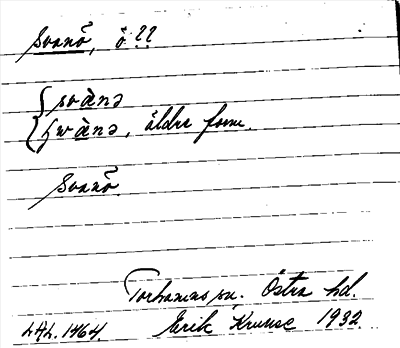 Svanö, ö ??
svànə
swànə, äldre form.
Svanö.
Torhamns sn. Östra hd.
LAL. 1464. Erik Kruuse 1932